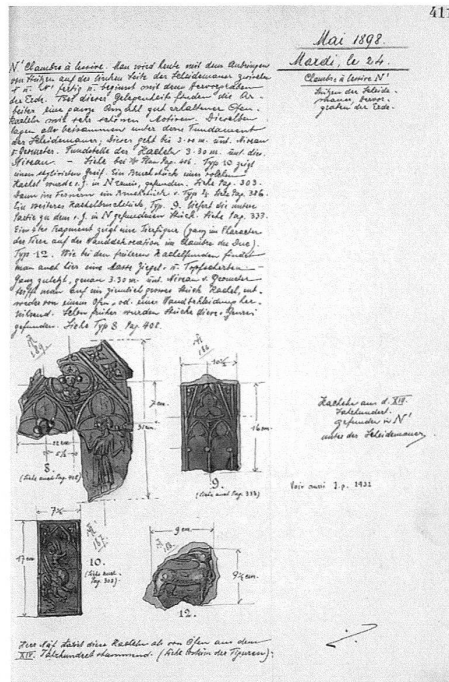 411
Mai 1898.
Mardi, le 24.
Chambre à lessive N'
Stützen der Scheide-
mauer, hervor-
graben der Erde.
N' Chambre à lessive. Man wird heute mit dem Anbringen
von Stützen auf der linken Seite der Scheidemauer zwischen
fertig u. beginnt mit dem Hervorgraben
der Erde. Bei dieser Gelegenheit finden die Ar-
beiter eine ganze Anzahl gut erhaltener Ofen-
kacheln mit sehr schönen Motiven. Dieselben
lagen alle beisammen unter dem Fundament
der Scheidemauer. Dieses geht bis 3.00 m. unt. Niveau
v. Geometer. Fundstelle der Kacheln 3.30 m. unt. dies.
Niveau. — Siehe Plan Pag. 406. Typ 10 zeigt
einen stylisirten Greif. Ein Bruchstück einer solchen
Kachel wurde s. Z. in N gefunden. Siehe Pag. 303.
Dann im Ferneren ein Bruchstück v. Typ Siehe Pag. 386.
Ein weiteres Kachelbruchstück, Typ. 9. liefert die untere
Partie zu dem s. Z. in N gefundenen Stück. Siehe Pag. 333.
Ein Fragment zeigt eine Tierfigur (ganz im Charakter
der Tiere auf der Wanddekoration im Chambre du Duc).
Typ 12. Wie bei den früheren Kachelfunden findet
man auch hier eine Masse Ziegel- u. Topfscherben —
Ganz zuletzt, genau 3.30 m. unt. Niveau v. Geometer
stösst man auf ein ziemlich grosses Stück Kachel, ent-
weder von einem Ofen, od. einer Wandbekleidung her-
rührend. Schon früher wurden Stücke dieses Genres
gefunden. Siehe Typ 8 Pag 408.
12 cm
8.
(Siehe auch Pag. 408)
31 cm
16 cm
9.
(Siehe auch Pag. 333)
Kacheln aus d. XIV.
Jahrhundert.
gefunden in N'
unter der Scheidemauer
Voir aussi J.p. 1932
17 cm
10.
(Siehe auch
Pag. 303)
9 cm
9½ cm.
12.
Herr Näf taxirt diese Kacheln als von Ofen aus dem
XIV. Jahrhundert stammend. (Siehe Costüm der Figuren).